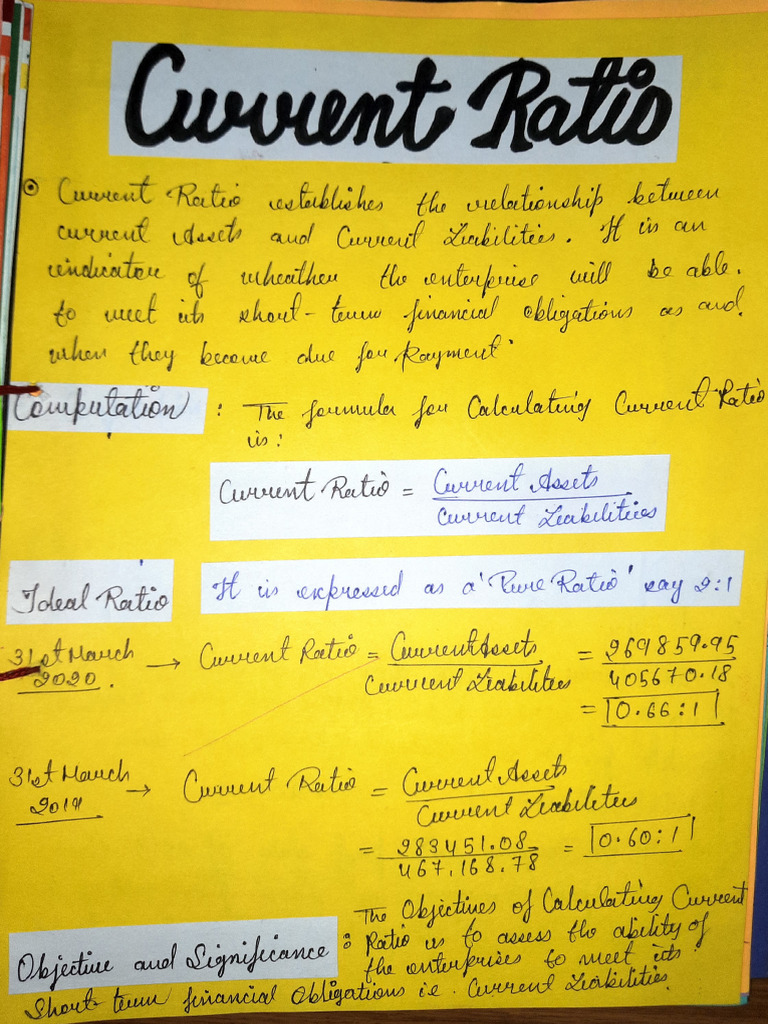 Current Ratio
Current Ratio establishes the relationship between
current Assets and Current Liabilities. It is an
indicator of wheather the enterprise will be able.
to meet its short-term financial obligations as and
when they become due for Payment.
Computation : The formula for Calculating Current Ratio
is:
Current Ratio = Current Assets
Current Liabilities
Ideal Ratio It is expressed as a 'Pure Ratio' say 2:1
31st March
2020. → Current Ratio = Current Assets = 269859.95
Current Liabilities 405670.18
= 0.66:1
31st March
2019 → Current Ratio = Current Assets
Current Liabilities
= 283451.08 = 0.60:1
467,168.78
Objective and Significance : The Objectives of Calculating Current
Ratio is to assess the ability of
the enterprises to meet its
Short-term financial Obligations i.e. Current Liabilities.